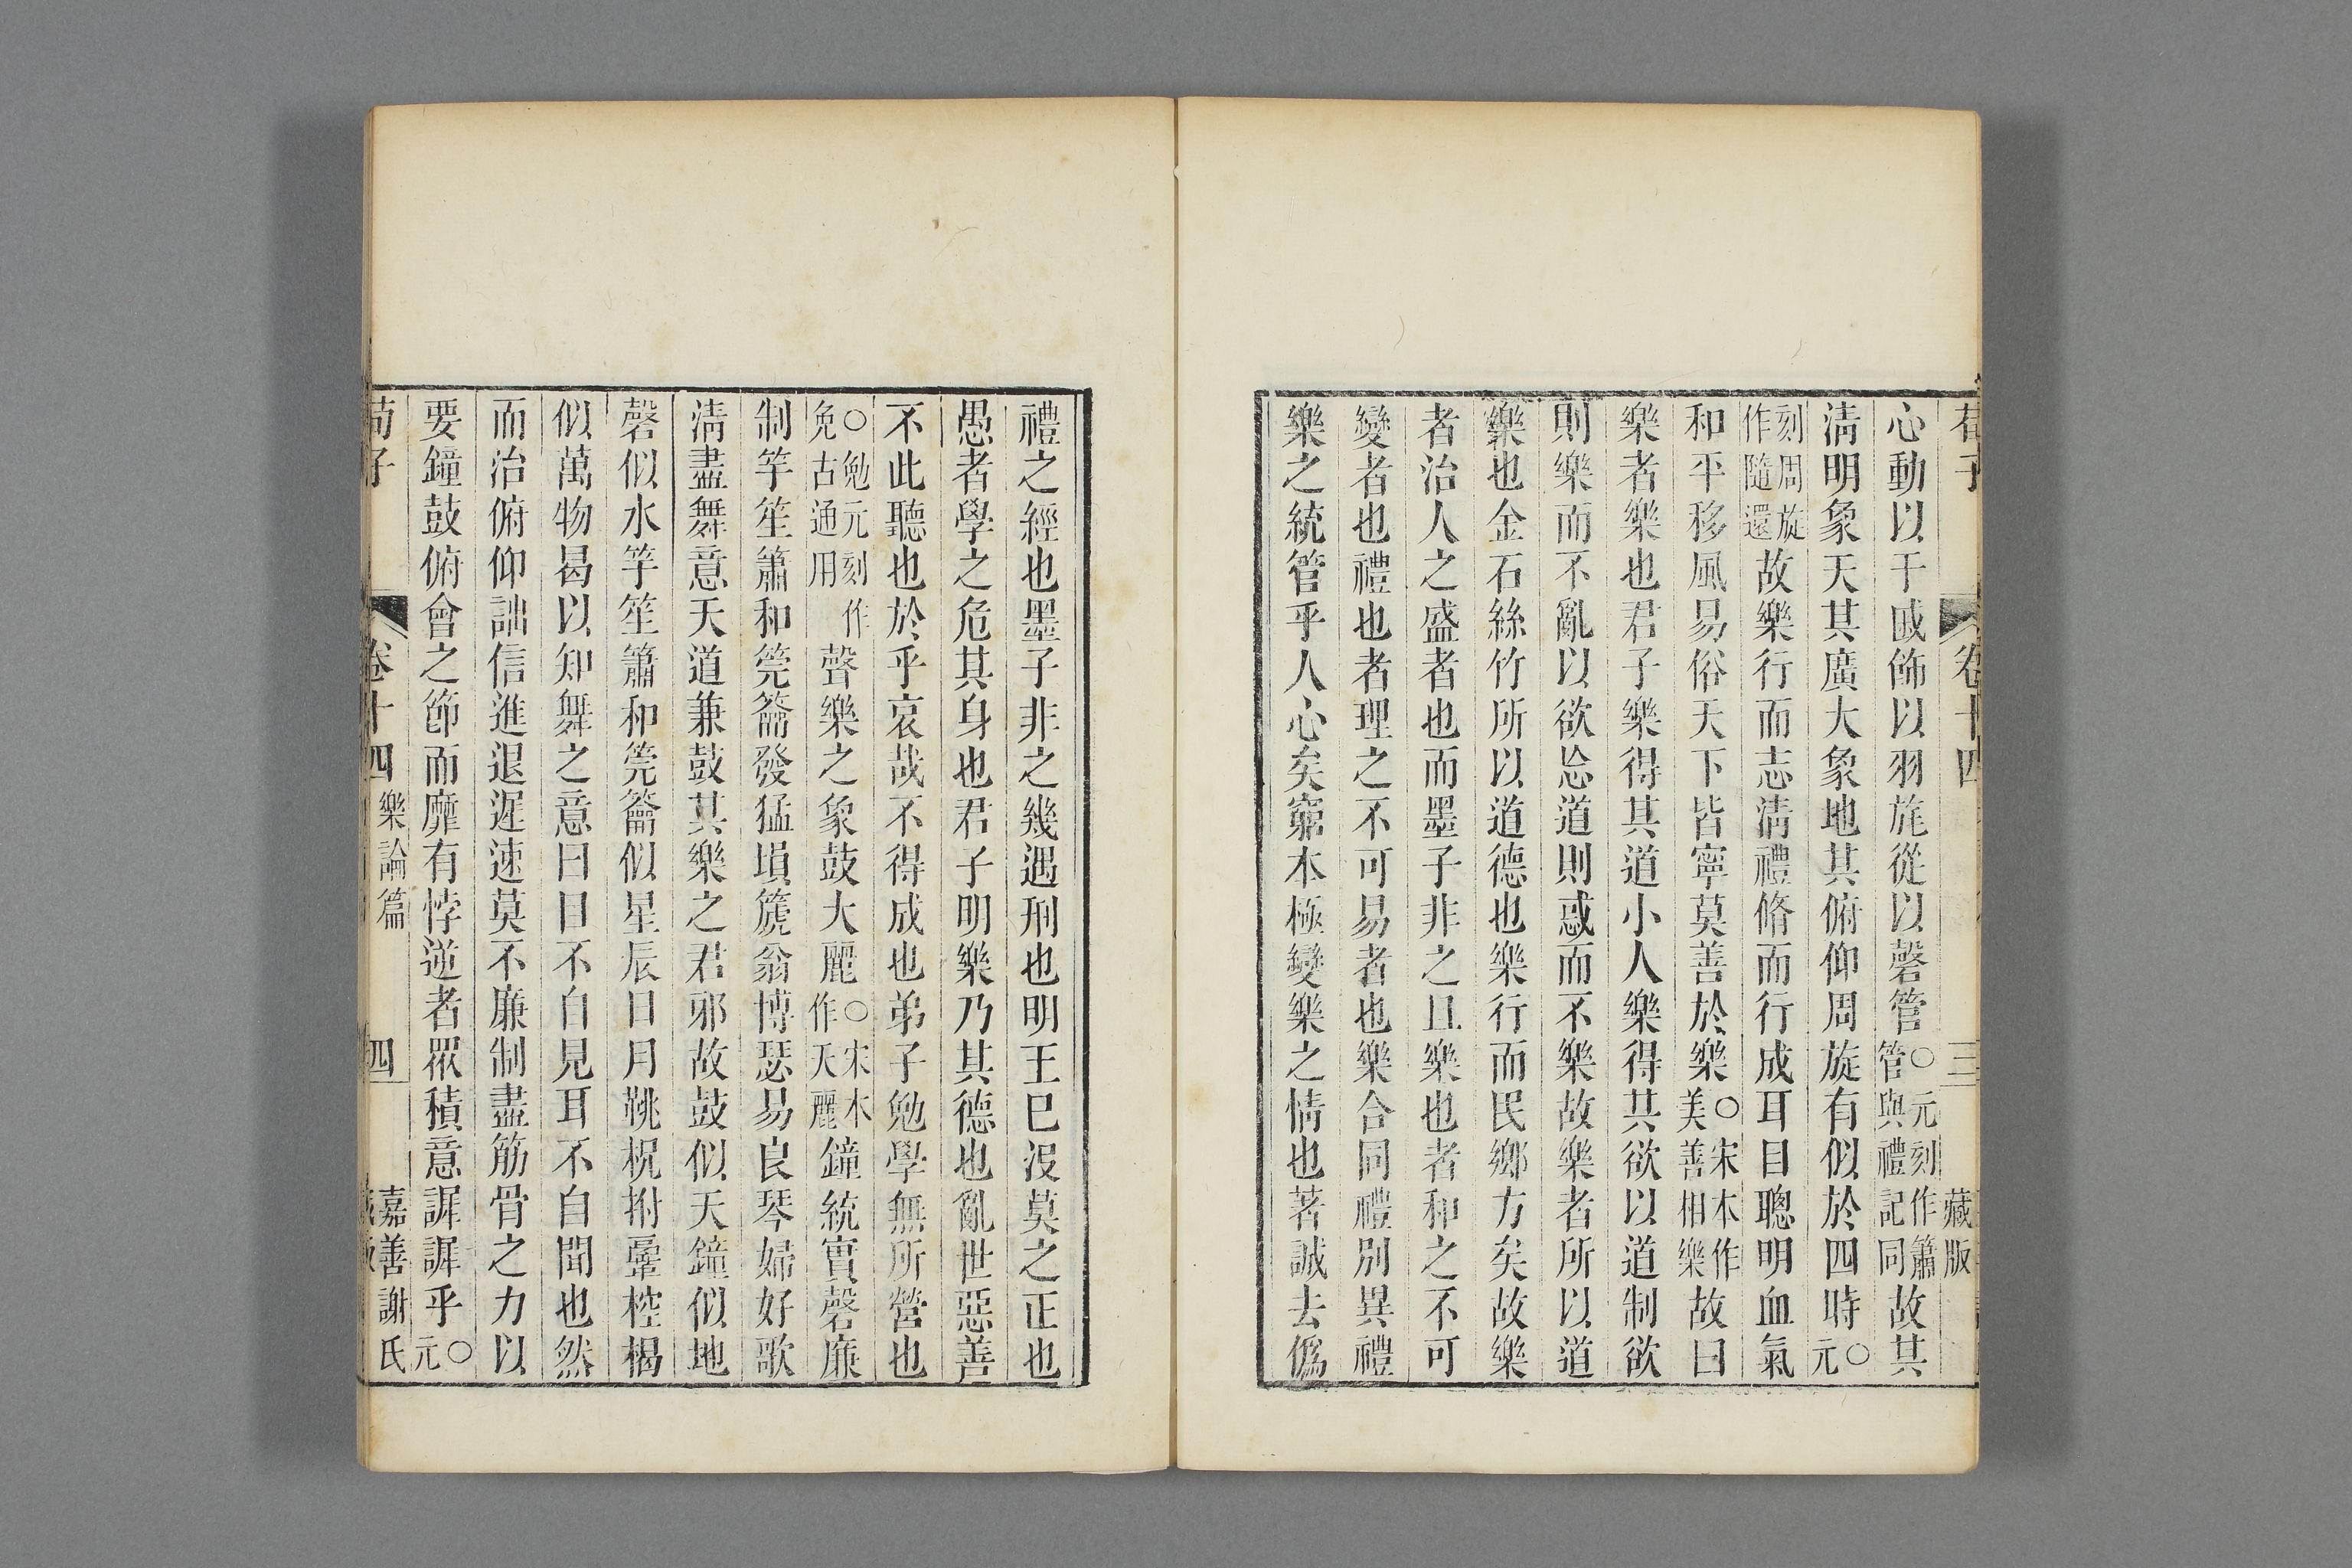 荀子 卷十四 三 藏版
心動以干戚飾以羽旄從以磬管○元刻作簫管與禮記同故其
清明象天其廣大象地其俯仰周旋有似於四時○元
刻周旋作隨還故樂行而志清禮脩而行成耳目聰明血氣
和平移風易俗天下皆寧莫善於樂○宋本作美善相樂故曰
樂者樂也君子樂得其道小人樂得其欲以道制欲
則樂而不亂以欲忘道則惑而不樂故樂者所以道
樂也金石絲竹所以道德也樂行而民鄉方矣故樂
者治人之盛者也而墨子非之且樂也者和之不可
變者也禮也者理之不可易者也樂合同禮別異禮
樂之統管乎人心矣窮本極變樂之情也著誠去僞
禮之經也墨子非之幾遇刑也明王已沒莫之正也
愚者學之危其身也君子明樂乃其德也亂世惡善
不此聽也於乎哀哉不得成也弟子勉學無所營也
○勉元刻作免古通用聲樂之象鼓大麗○宋本作天麗鐘統實磬廉
制竽笙簫和筦籥發猛塤箎翁博瑟易良琴婦好歌
清盡舞意天道兼鼓其樂之君邪故鼓似天鐘似地
磬似水竽笙簫和筦籥似星辰日月鞉柷拊鞷椌楬
似萬物曷以知舞之意曰目不自見耳不自聞也然
而治俯仰詘信進退遲速莫不廉制盡筋骨之力以
要鐘鼓俯會之節而靡有悖逆者眾積意謘謘乎○元
荀子 卷十四 樂論篇 四 嘉善謝氏藏版